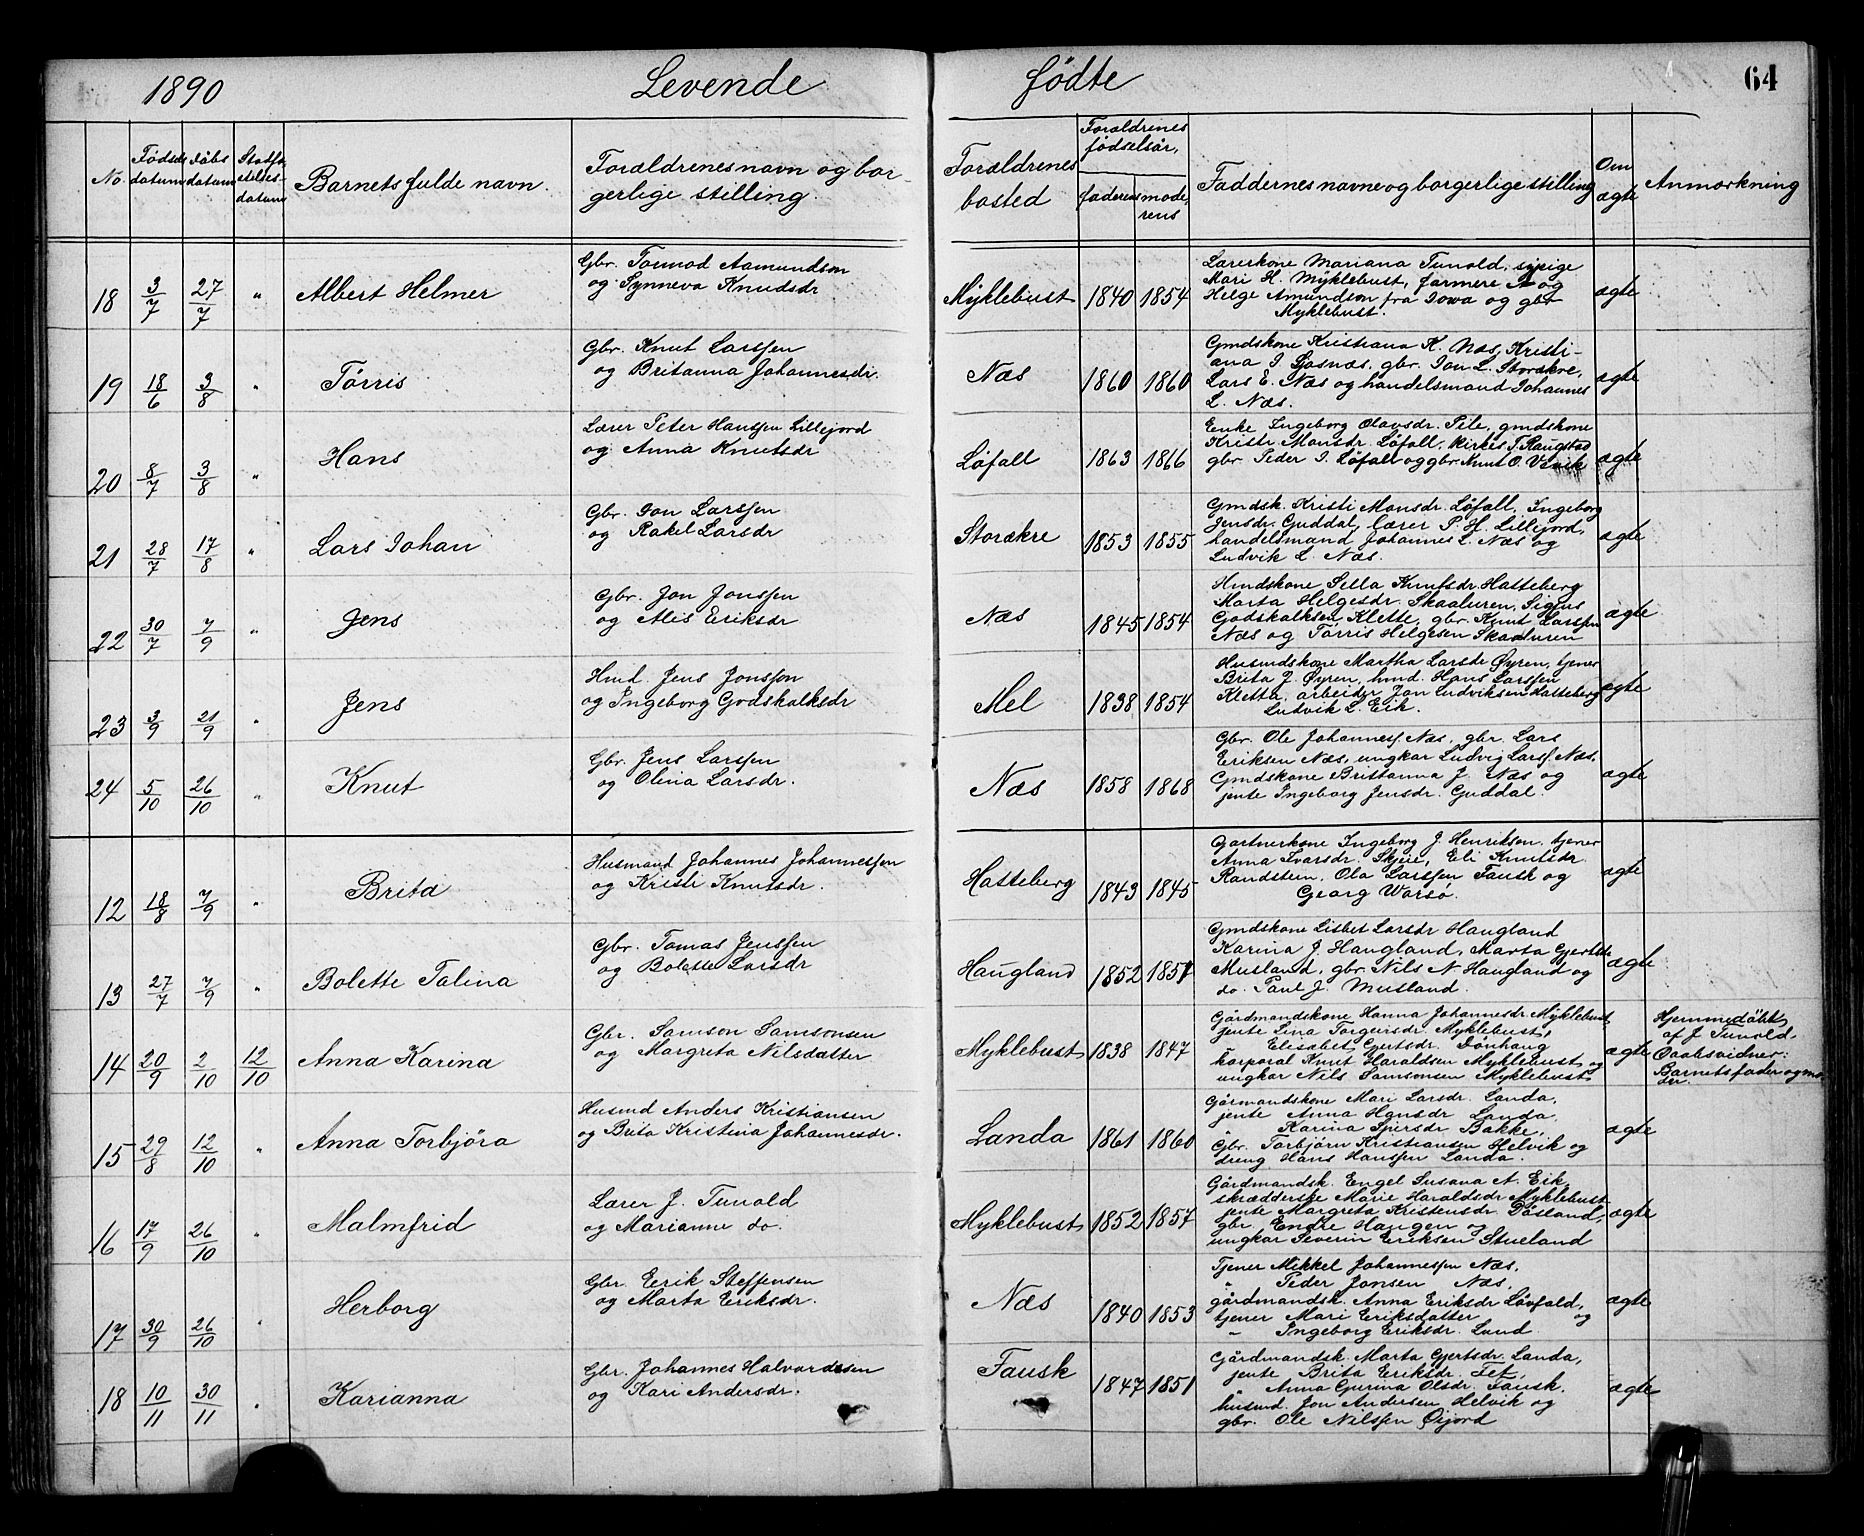 1890 Levende fødte 64
No. Fødsels datum Daabs datum Stadfæstelses datum Barnets fulde navn. Forældrenes navn og borgerlige stilling. Forældrenes bosted Forældrenes fødselsår, faderens moderens Faddernes navne og borgerlige stilling Om ægte Anmærkning
18 3/7 27/7 " Albert Helmer
Gbr. Tormod Aamundson
og Synneva Knudsdr
Myklebust 1840 1854
Lærerkone Mariana Tunold, sypige
Mari H. Myklebust, farmere A og
Helge Amundson fra Iowa og gbr
Myklebust.
ægte
19 18/6 3/8 " Tørris
Gbr. Knut Larssen
og Britanna Johannesdr.
Næs 1860 1860
Gmdskone Kristiana K. Næs, Kristi-
ana I Gjosnæs, gbr. Jon L. Storækre,
Lars E. Næs og handelsmand Johannes
L. Næs.
ægte
20 8/7 3/8 " Hans
Lærer Peter Hanssen Lillejord
og Anna Knutsdr
Løfall 1863 1866
Enke Ingeborg Olavsdr. Tele, gmdskone
Kristi Monsdr. Løfall, kirkes. T. Raugstad
gbr Peder I. Løfall og gbr. Knut O. Vevik
ægte
21 28/7 17/8 " Lars Johan
Gbr. Jon Larssen
og Rakel Larsdr
Storækre 1853 1855
Gmdsk. Kristi Monsdr. Løfall, Ingeborg
Jensdr. Guddal, lærer P. H. Lillejord,
handelsmand Johannes L. Næs og
Ludvik L. Næs.
ægte
22 30/7 7/9 " Jens
Gbr. Jon Jonssen
og Alis Eriksdr
Næs 1845 1854
Hmdskone Sella Knutsdr. Hatteberg
Marta Helgesdr. Skaaluren, Sigtus
Godskalksen Klette, gbr. Knut Larssen
Næs og Tørris Helgesen Skaaluren
ægte
23 3/9 21/9 " Jens
Hmd. Jens Jonsson
og Ingeborg Godskalksdr
Mel 1838 1854
Husmdskone Martha Larsdr Øyren, tjener
Brita J. Øyren, hmd. Hans Larssen
Kletta, arbeider Jon Ludviksen Hatteberg
Ludvik L. Eik.
ægte
24 5/10 26/10 " Knut
Gbr. Jens Larssen
og Olina Larsdr.
Næs 1858 1868
Gbr. Ole Johanness. Næs, gbr. Lars
Eriksen Næs, ungkar Ludvig Larss. Næs,
Gmdskone Brittanna J. Næs og
jente Ingeborg Jensdr. Guddal.
ægte
12 18/8 7/9 " Brita
Husmand Johannes Johannessen
og Kristi Knutsdr.
Hatteberg 1843 1845
Gartnerkone Ingeborg J. Henrikson, tjener
Anna Ivarsdr. Skjeie, Eli Knutsdr.
Randstein, Ola Larssen Fausk og
Georg Warsø.
ægte
13 27/7 7/9 " Bolette Talina
Gbr. Tomas Jenssen
og Bolette Larsdr
Haugland 1852 1851
Gmdskone Lisbet Larsdr Haugland
Karina J. Haugland, Marta Gjertsdr
Musland, gbr. Nils N Haugland og
do. Paul J. Musland.
ægte
14 20/9 2/10 12/10 Anna Karina
Gbr. Samson Samsonsen
og Margreta Nilsdatter
Myklebust 1838 1847
Gårdmandskone Hanna Johannesdr. Myklebust
jente Lina Torgersdr. Myklebust,
" Elisabet Gjertsdr. Dønhaug
korporal Knut Haraldsen Myklebust og
ungkar Nils Samsonsen Myklebust
ægte
Hjemmedøbt
af J Tunold.
Daabsvidner:
Barnets fader og mo-
der.
15 29/8 12/10 " Anna Torbjøra
Husmd Anders Kristiansen
og Brita Kristina Johannesdr.
Landa 1861 1860
Gårmandskone Mari Larsdr. Landa,
jente Anna Hansdr. Landa,
" Karina Sjursdr Bakke,
Gbr. Torbjørn Kristiansen Helvik og
dreng Hans Hanssen Landa.
ægte
16 17/9 26/10 " Malmfrid
Lærer J. Tunold
og Marianne do.
Myklebust 1852 1857
Gårdmandsk. Engel Susana A. Eik,
skrædderske Marie Haraldsdr Myklebust
jente Margreta Kristensdr. Døsland,
gbr. Endre Haugen og
ungkar Severin Eriksen Stueland
ægte
17 30/9 26/10 " Herborg
Gbr. Eerik Steffensen
og Marta Eriksdr.
Næs 1840 1853
Tjener Mikkel Johannessen Næs,
" Peder Jonsen Næs,
gårdmandsk. Anna Eriksdr Løvfald,
tjener Mari Eriksdatter og
" Ingeborg Eriksdr. Lund
ægte
18 10/11 30/11 " Karianna
Gbr. Johannes Halvardssen
og Kari Andersdr.
Fausk 1847 1851
Gårdmandsk. Marta Gjertsdr. Landa,
jente Brita Eriksdr. Fet,
" Anna Gurina Olsdr. Fausk.
husmd. Jon Andersen Helvik og
gbr. Ole Nilssen Øijord
ægte